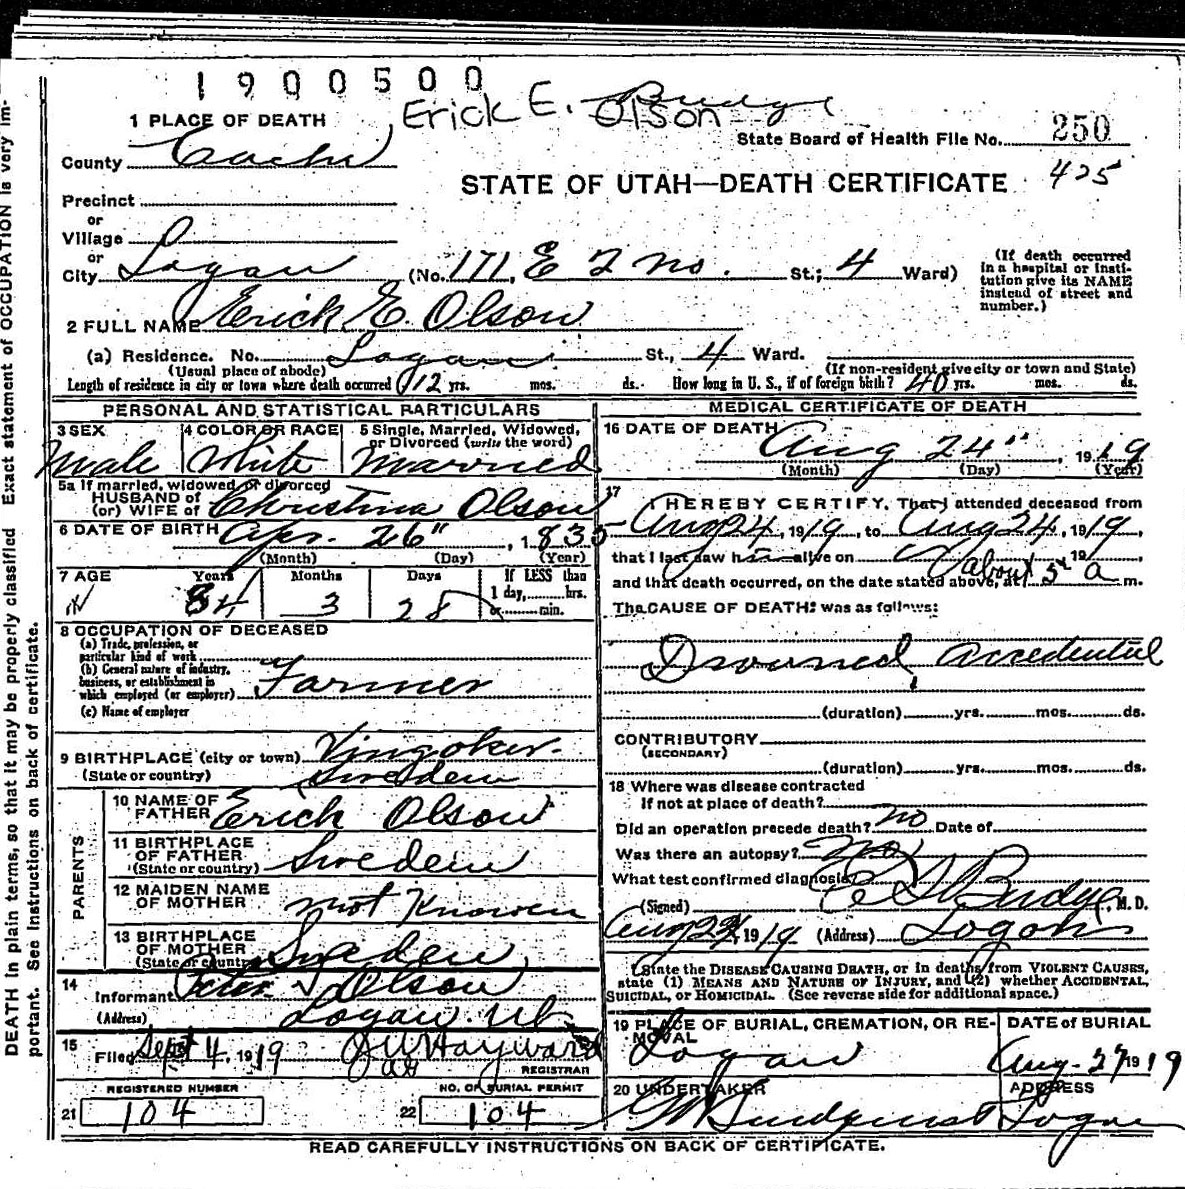 1900500
Erick E. Olson
Budge
1 PLACE OF DEATH
State Board of Health File No. 250
County Cache
425
STATE OF UTAH—DEATH CERTIFICATE
Precinct
or
Village
or
City Logan (No. 171, E 2 No. St.; 4 Ward)
(If death occurred in a hospital or institution give its NAME instead of street and number.)
2 FULL NAME Erick E. Olson
(a) Residence. No. Logan St., 4 Ward.
(Usual place of abode) (If non-resident give city or town and State)
Length of residence in city or town where death occurred 12 yrs. mos. ds. How long in U. S., if of foreign birth? 40 yrs. mos. ds.
PERSONAL AND STATISTICAL PARTICULARS
3 SEX Male
4 COLOR OR RACE White
5 Single, Married, Widowed, or Divorced (write the word) Married
5a If married, widowed or divorced
HUSBAND of
(or) WIFE of Christina Olson
6 DATE OF BIRTH Apr. 26", 1835
(Month) (Day) (Year)
7 AGE Years 84 Months 3 Days 28
If LESS than
1 day, hrs.
or min.
8 OCCUPATION OF DECEASED
(a) Trade, profession, or
particular kind of work
(b) General nature of industry,
business, or establishment in
which employed (or employer) Farmer
(c) Name of employer
9 BIRTHPLACE (city or town) Vingoker.
(State or country) Sweden
PARENTS
10 NAME OF
FATHER Erick Olson
11 BIRTHPLACE
OF FATHER
(State or country) Sweden
12 MAIDEN NAME
OF MOTHER not Known
13 BIRTHPLACE
OF MOTHER
(State or country) Sweden
14
Informant Peter Olson
(Address) Logan. Ut.
15
Filed Sept 4, 1919 Hayward
REGISTRAR
REGISTERED NUMBER
21 104
NO. OF BURIAL PERMIT
22 104
MEDICAL CERTIFICATE OF DEATH
16 DATE OF DEATH Aug 24", 1919
(Month) (Day) (Year)
17
I HEREBY CERTIFY, That I attended deceased from
Aug 24, 1919, to Aug 24, 1919,
that I last saw h alive on 19
and that death occurred, on the date stated above, at about 5 a m.
The CAUSE OF DEATH: was as follows:
Drowned, Accidential
(duration) yrs. mos. ds.
CONTRIBUTORY
(SECONDARY)
(duration) yrs. mos. ds.
18 Where was disease contracted
If not at place of death?
Did an operation precede death? no Date of
Was there an autopsy? no
What test confirmed diagnosis
(Signed) Budge, M. D.
Aug 1919 (Address) Logan
State the DISEASE CAUSING DEATH, or in deaths from VIOLENT CAUSES,
state (1) MEANS AND NATURE OF INJURY, and (2) whether ACCIDENTAL,
SUICIDAL, or HOMICIDAL. (See reverse side for additional space.)
19 PLACE OF BURIAL, CREMATION, OR RE-
MOVAL Logan
DATE of BURIAL
Aug. 27 1919
20 UNDERTAKER
ADDRESS
Logan
READ CAREFULLY INSTRUCTIONS ON BACK OF CERTIFICATE.
DEATH in plain terms, so that it may be properly classified Exact statement of OCCUPATION is very im-
portant. See instructions on back of certificate.